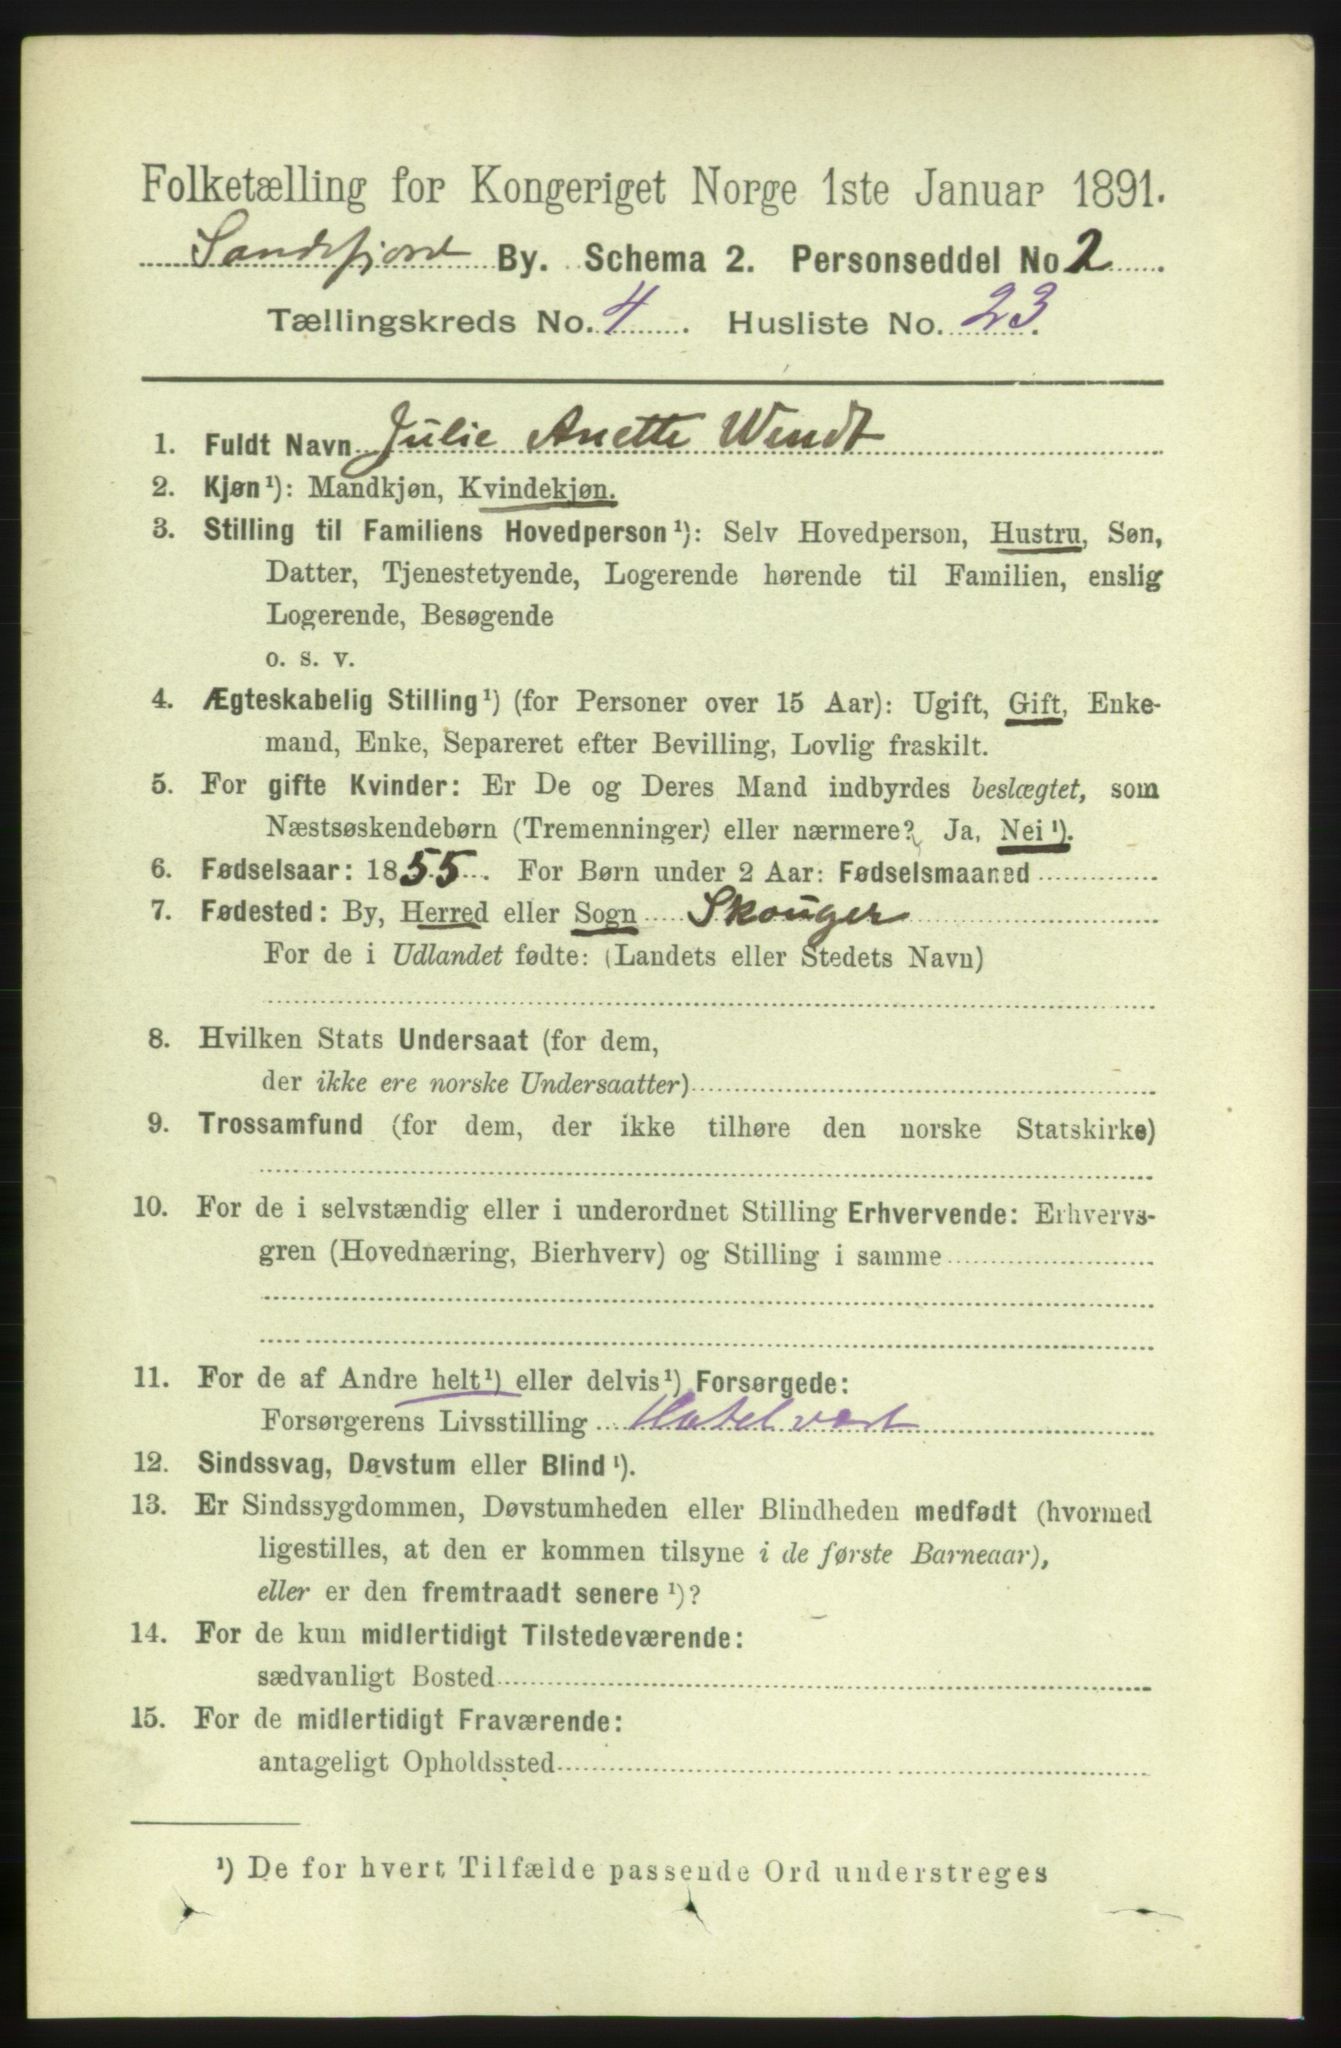 Folketælling for Kongeriget Norge 1ste Januar 1891.
Sandefjord By. Schema 2. Personseddel No 2
Tællingskreds No. 4. Husliste No. 23.
1. Fuldt Navn Julie Anette Wendt
2. Kjøn¹): Mandkjøn, Kvindekjøn.
3. Stilling til Familiens Hovedperson¹): Selv Hovedperson, Hustru, Søn,
Datter, Tjenestetyende, Logerende hørende til Familien, enslig
Logerende, Besøgende
o. s. v.
4. Ægteskabelig Stilling¹) (for Personer over 15 Aar): Ugift, Gift, Enke-
mand, Enke, Separeret efter Bevilling, Lovlig fraskilt.
5. For gifte Kvinder: Er De og Deres Mand indbyrdes beslægtet, som
Næstsøskendebørn (Tremenninger) eller nærmere? Ja, Nei¹).
6. Fødselsaar: 1855. For Børn under 2 Aar: Fødselsmaaned
7. Fødested: By, Herred eller Sogn Skouger
For de i Udlandet fødte: (Landets eller Stedets Navn)
8. Hvilken Stats Undersaat (for dem,
der ikke ere norske Undersaatter)
9. Trossamfund (for dem, der ikke tilhøre den norske Statskirke)
10. For de i selvstændig eller i underordnet Stilling Erhvervende: Erhvervs-
gren (Hovednæring, Bierhverv) og Stilling i samme
11. For de af Andre helt¹) eller delvis¹) Forsørgede:
Forsørgerens Livsstilling Hotelvært
12. Sindssvag, Døvstum eller Blind¹).
13. Er Sindssygdommen, Døvstumheden eller Blindheden medfødt (hvormed
ligestilles, at den er kommen tilsyne i de første Barneaar),
eller er den fremtraadt senere¹)?
14. For de kun midlertidigt Tilstedeværende:
sædvanligt Bosted
15. For de midlertidigt Fraværende:
antageligt Opholdssted
¹) De for hvert Tilfælde passende Ord understreges